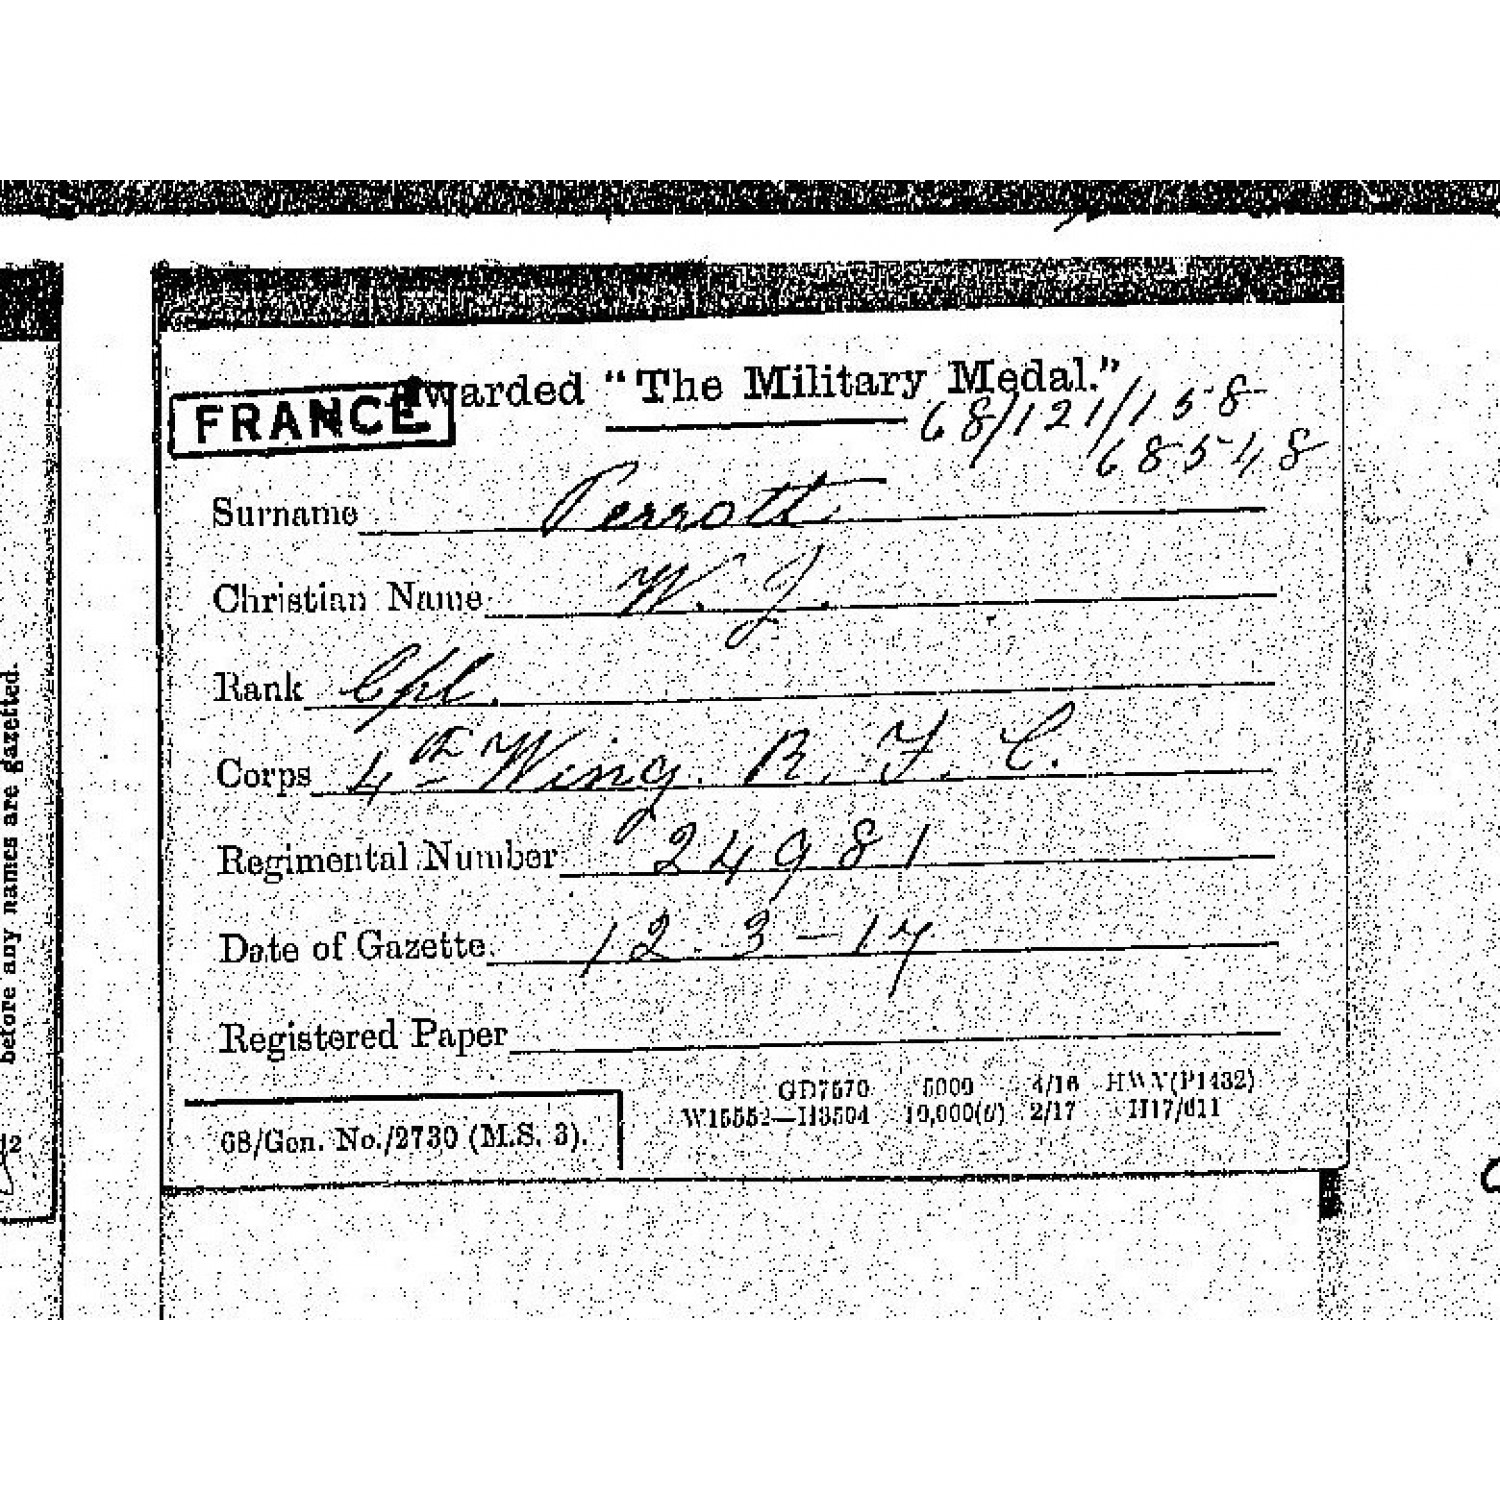 FRANCE
Awarded "The Military Medal."
68/121/158
68548
Surname Perrott
Christian Name W. J.
Rank Cpl.
Corps 4th Wing. R. F. C.
Regimental Number 24981
Date of Gazette 12. 3 - 17
Registered Paper
GD7670 5000 4/16 HWV(P1432)
W15552—H3504 10,000(6) 2/17 H17/611
68/Gen. No./2730 (M.S. 3).
before any names are gazetted.